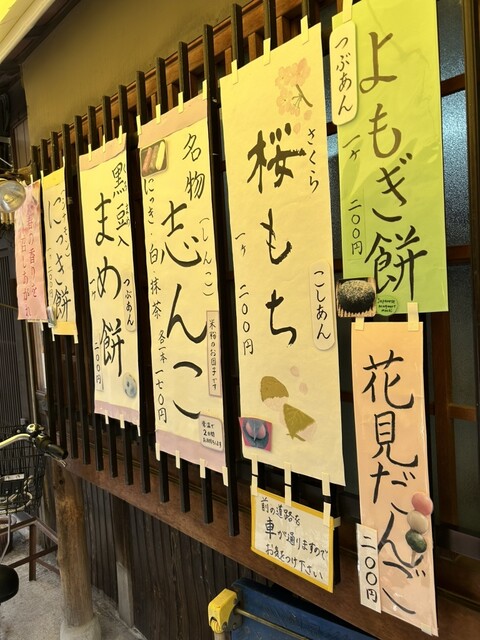 よもぎ餅
つぶあん
一ヶ
二〇〇円
Japanese
mugwort
mochi
花見だんご
二〇〇円
さくら
桜もち
こしあん
一ヶ 二〇〇円
名物
志んこ
(しんこ)
米粉のお団子です
にっき 白 抹茶 各一本一七〇円
常温で
2日間
黒豆入
まめ餅
つぶあん
二〇〇円
にっき餅
前の道路を
車が通りますので
お気をつけ下さい